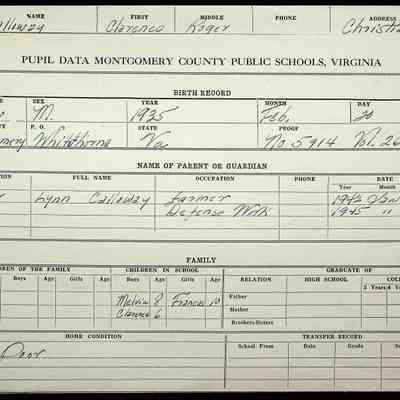 NAME FIRST MIDDLE PHONE ADDRESS
Calloway Clarence Roger Christia
PUPIL DATA MONTGOMERY COUNTY PUBLIC SCHOOLS, VIRGINIA
BIRTH RECORD
SEX YEAR MONTH DAY
M. 1935 Feb. 20
P. O. STATE PROOF
Whitethorne Va No 5914 Vol. 26
NAME OF PARENT OR GUARDIAN
TION FULL NAME OCCUPATION PHONE DATE
Year Month
Lynn Calloway Farmer 1942
Defense Work 1945 "
FAMILY
REN OF THE FAMILY CHILDREN IN SCHOOL GRADUATE OF
Boys Age Girls Age Boys Age Girls Age RELATION HIGH SCHOOL COL
2 Years 4 Y
Melvin 8 Frances 10 Father
Clarence 6 Mother
Brothers-Sisters
HOME CONDITION TRANSFER RECORD
Poor School From Date Grade School